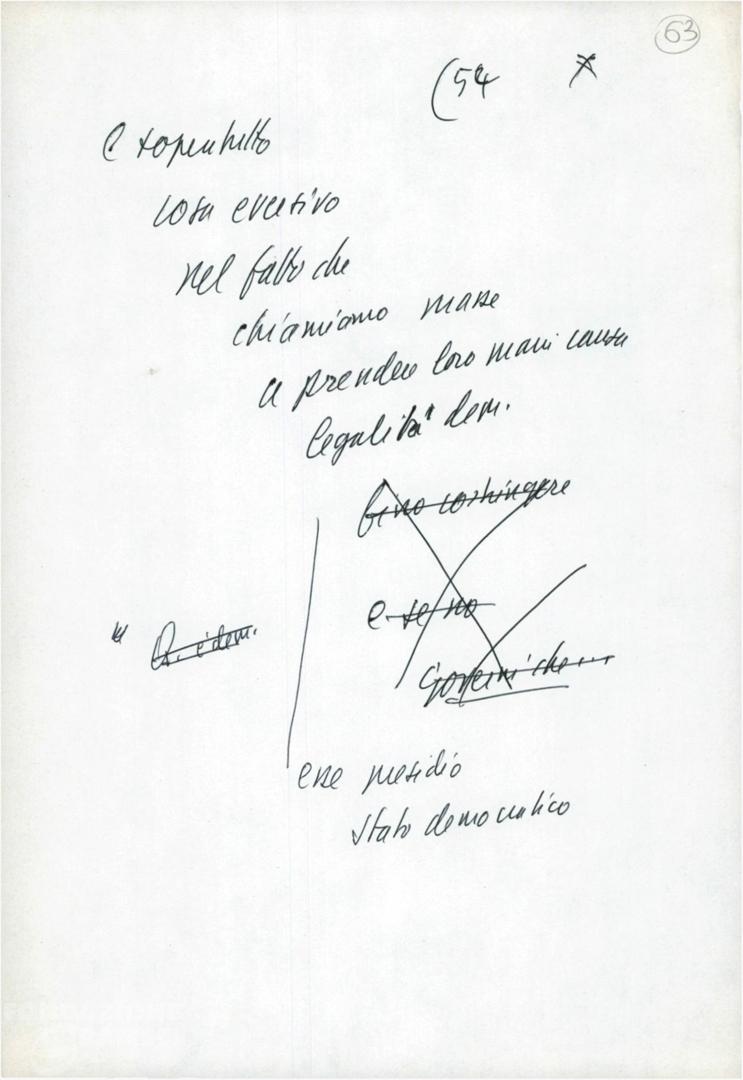 63
(54
e soprattutto
cosa eversivo
nel fatto che
chiamiamo masse
a prendere loro mani causa
legalità dem.
fino costringere
e se no
è dem.
Governi che...
esse presidio
stato democratico